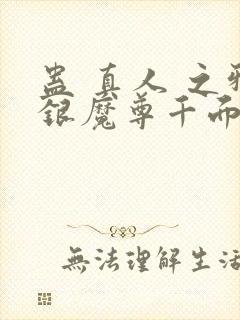 蛊真人之
銀魔尊千而
無法理解生活